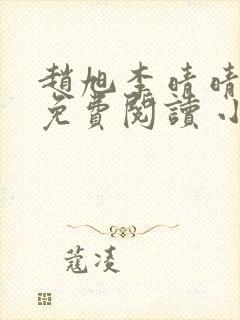 趙旭李晴晴
免費閱讀小
蔻凌